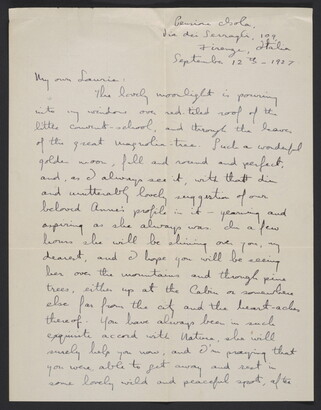 Pensione Isola,
Via dei Serragli, 109
Firenze, Italia
September 12th - 1927
My own Laurie:
The lovely moonlight is pouring
into my windows over red-tiled roof of the
little convent-school, and through the leaves
of the great magnolia-tree. Such a wonderful
golden moon, full and round and perfect,
and, as I always see it, with that dim
and unutterably lovely suggestion of our
beloved Anne's profile in it - yearning and
aspiring as she always was. In a few
hours she will be shining over you, my
dearest, and I hope you will be seeing
her over the mountains and through pine
trees, either up at the Cabin or somewhere
else far from the city and the heart-aches
thereof. You have always been in such
exquisite accord with Nature, she will
surely help you now, and I'm praying that
you were able to get away and rest in
some lovely wild and peaceful spot, after